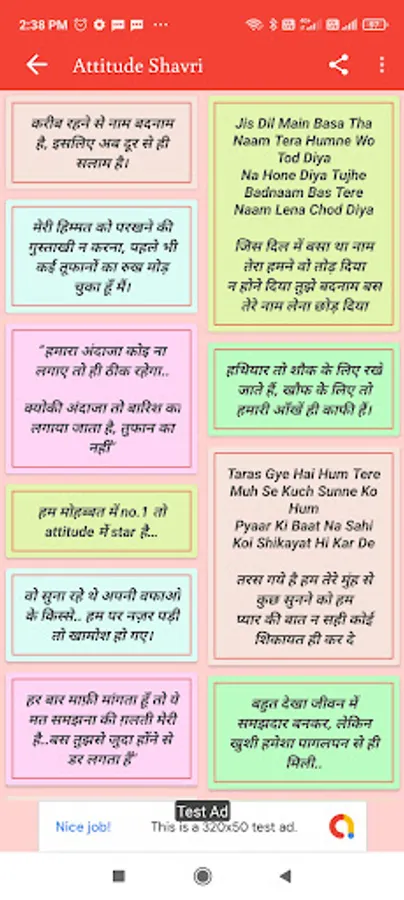 2:38 PM
87
Attitude Shavri
करीब रहने से नाम बदनाम
है, इसलिए अब दूर से ही
सलाम है।
मेरी हिम्मत को परखने की
गुस्ताखी न करना, पहले भी
कई तूफानों का रुख मोड़
चुका हूँ मैं।
"हमारा अंदाजा कोइ ना
लगाए तो ही ठीक रहेगा..
क्योकी अंदाजा तो बारिश का
लगाया जाता है, तुफान का
नहीं"
हम मोहब्बत में no.1 तो
attitude में star है...
वो सुना रहे थे अपनी वफाओ
के किस्से.. हम पर नज़र पड़ी
तो खामोश हो गए।
हर बार माफ़ी मांगता हूँ तो ये
मत समझना की ग़लती मेरी
है..बस तुझसे जुदा होंने से
डर लगता हैं"
Jis Dil Main Basa Tha
Naam Tera Humne Wo
Tod Diya
Na Hone Diya Tujhe
Badnaam Bas Tere
Naam Lena Chod Diya
जिस दिल में बसा था नाम
तेरा हमने वो तोड़ दिया
न होने दिया तुझे बदनाम बस
तेरे नाम लेना छोड़ दिया
हथियार तो शौक के लिए रखे
जाते हैं, खौफ के लिए तो
हमारी आँखें ही काफी हैं।
Taras Gye Hai Hum Tere
Muh Se Kuch Sunne Ko
Hum
Pyaar Ki Baat Na Sahi
Koi Shikayat Hi Kar De
तरस गये है हम तेरे मुंह से
कुछ सुनने को हम
प्यार की बात न सही कोई
शिकायत ही कर दे
बहुत देखा जीवन में
समझदार बनकर, लेकिन
खुशी हमेशा पागलपन से ही
मिली..
Test Ad
Nice job!
This is a 320x50 test ad.